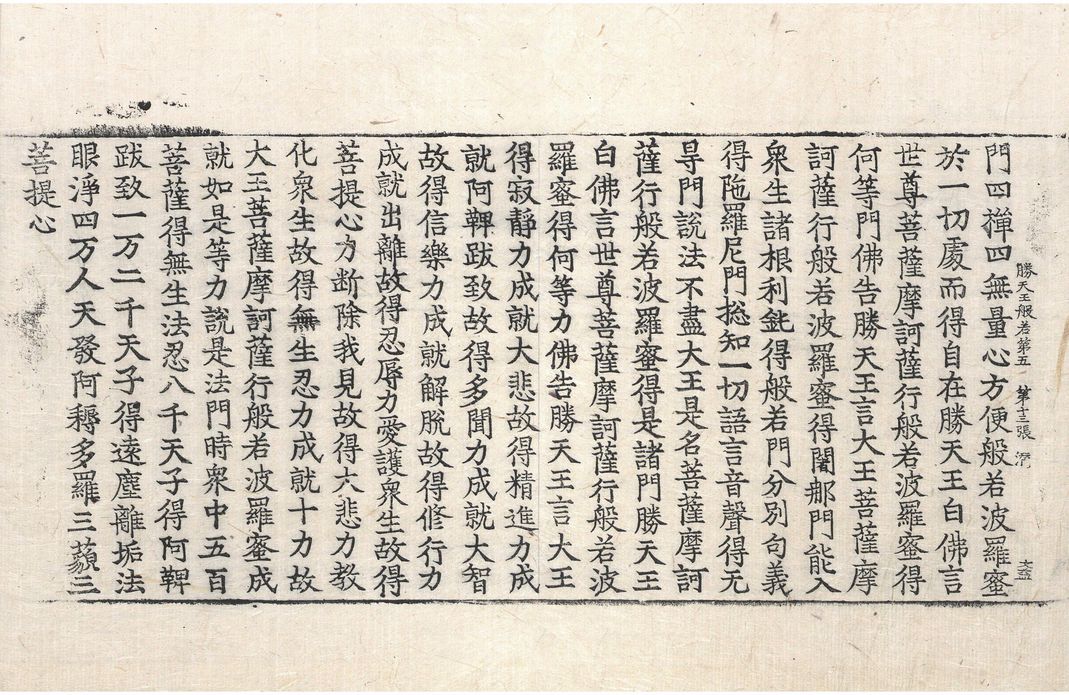 勝天王般若第五 第十三張 河
門四禪四無量心方便般若波羅蜜
於一切處而得自在勝天王白佛言
世尊菩薩摩訶薩行般若波羅蜜得
何等門佛告勝天王言大王菩薩摩
訶薩行般若波羅蜜得闍那門能入
衆生諸根利鈍得般若門分別句義
得陁羅尼門捴知一切語言音聲得无
㝵門說法不盡大王是名菩薩摩訶
薩行般若波羅蜜得是諸門勝天王
白佛言世尊菩薩摩訶薩行般若波
羅蜜得何等力佛告勝天王言大王
得寂靜力成就大悲故得精進力成
就阿鞞跋致故得多聞力成就大智
故得信樂力成就解脫故得修行力
成就出離故得忍辱力愛護衆生故得
菩提心力断除我見故得大悲力教
化衆生故得無生忍力成就十力故
大王菩薩摩訶薩行般若波羅蜜成
就如是等力說是法門時衆中五百
菩薩得無生法忍八千天子得阿鞞
跋致一万二千天子得遠塵離垢法
眼淨四万人天發阿耨多羅三藐三
菩提心